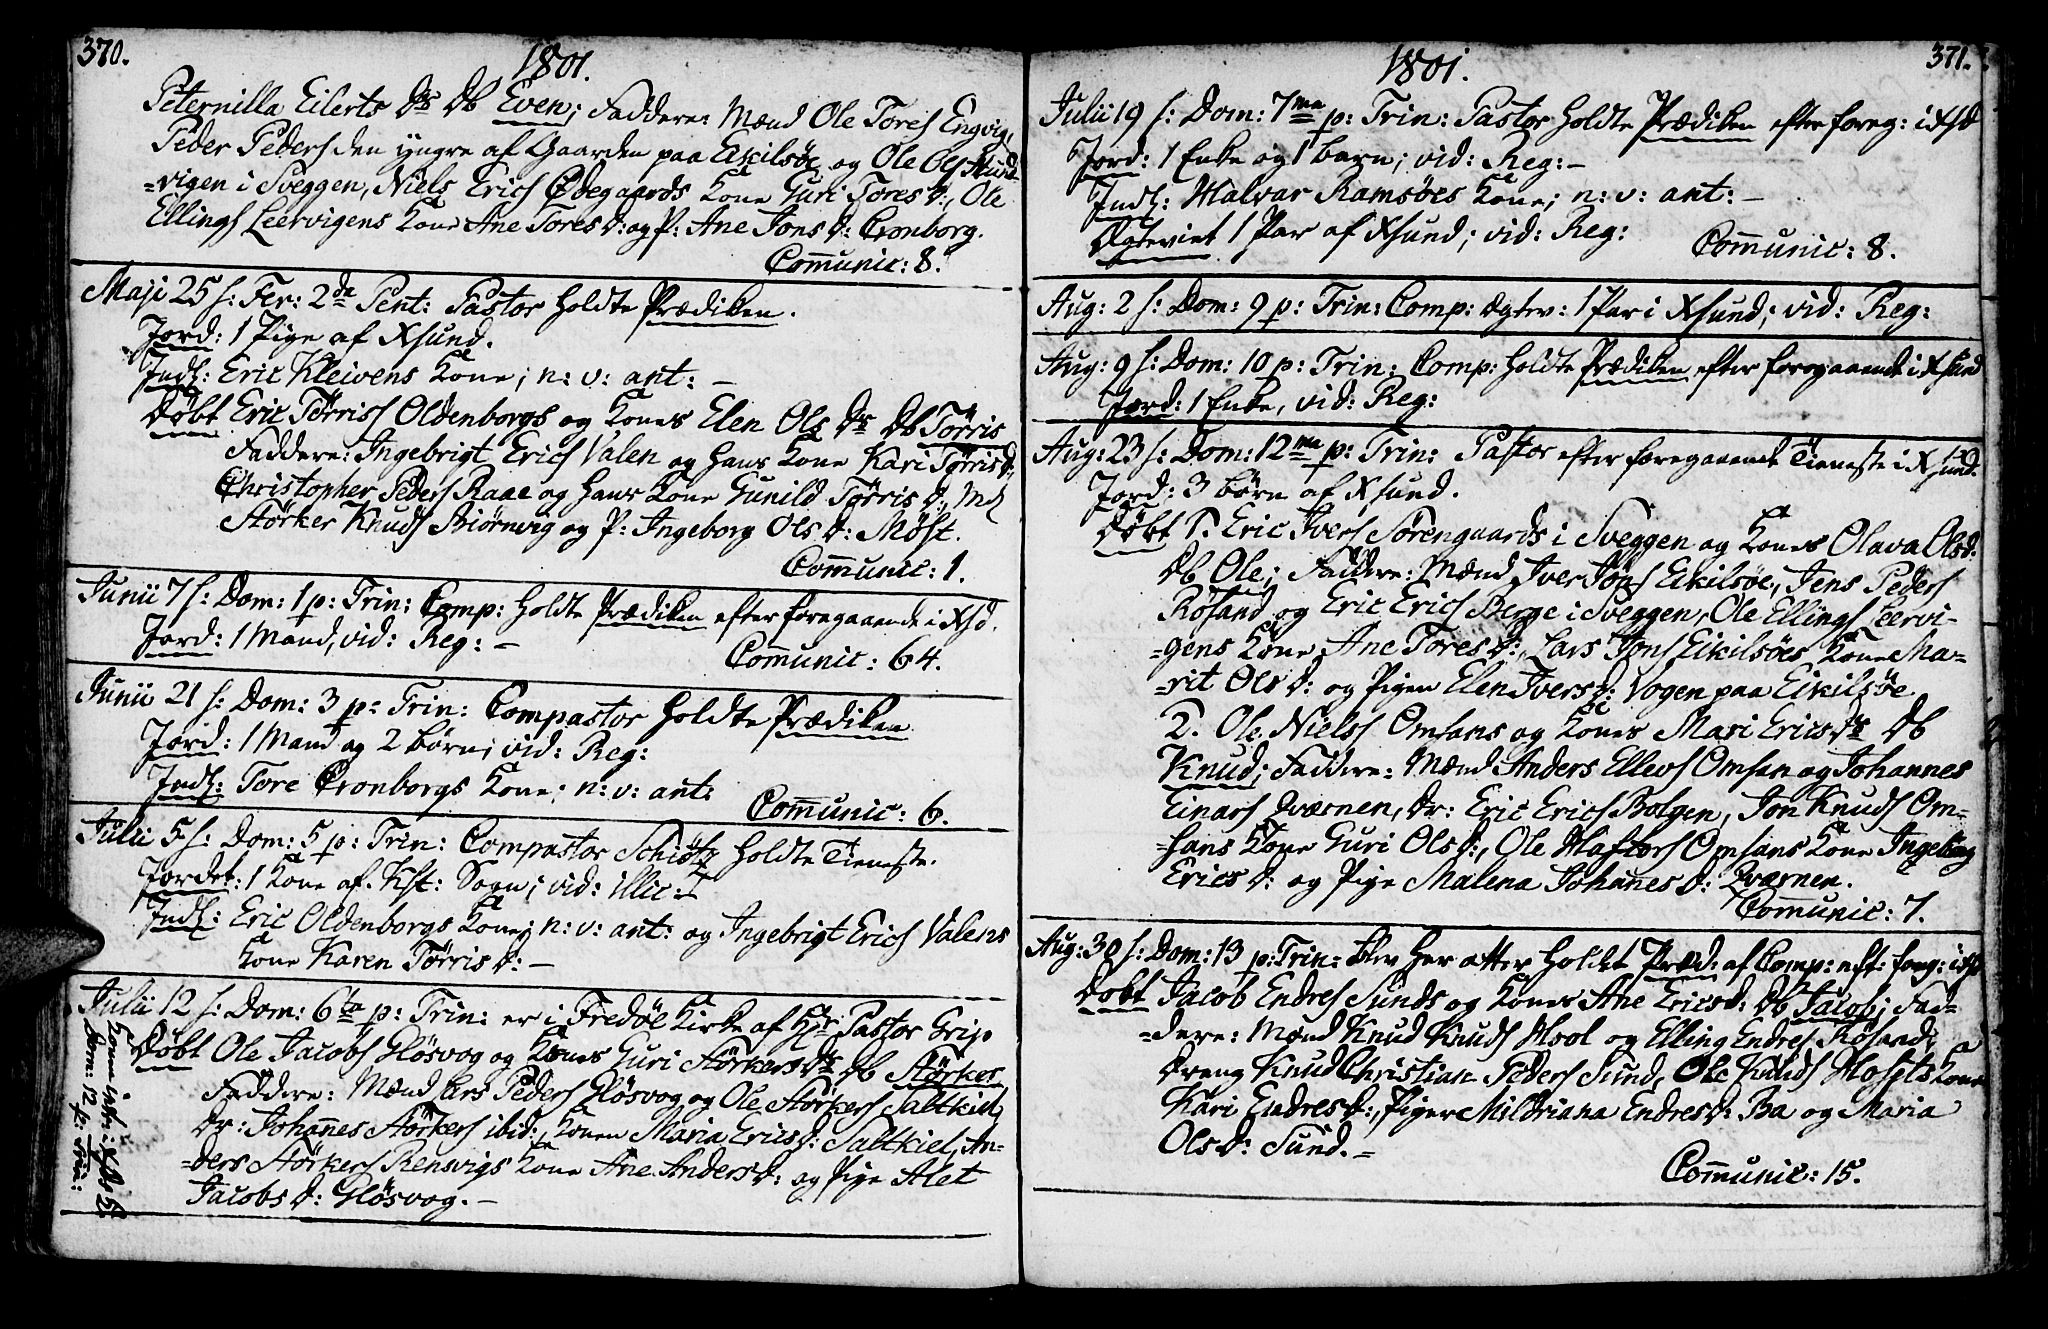 370.
1801.
Peternilla Eilerts Dr Db Even; Faddere: Mænd Ole Tores Engvig,
Peder Peders den yngre af Gaarden paa Eikilsøe og Ole Ols Hund-
=vigen i Sveggen, Niels Erics Ødegaards Kone Guri Tores D:, Ole
Ellings Leervigens Kone Ane Tores D: og P: Ane Jons D: Cronborg.
Communic: 8.
Maji 25 s: Fer: 2da Pent: Pastor holdte Prædiken.
Jord: 1 Pige af Xsund.
Indl: Eric Kleivens Kone; n: v: ant: –
Døbt Eric Tørriss Oldenborgs og Kones Elen Ols Dr Db Tørris
Faddere: Ingebrigt Erics Valen og hans Kone Kari Tørris D:,
Christopher Peders Raae og hans Kone Gunild Tørris D:, Md
Størker Knuds Biørnvig og P: Ingeborg Ols D: Møst.
Communic: 1.
Junii 7 s: Dom: 1 p: Trin: Comp: holdte Prædiken efter foregaaende i Xsd.
Jord: 1 Mand, vid: Reg: –
Communic: 64.
Junii 21 s: Dom: 3 p: Trin: Compastor holdte Prædiken
Jord: 1 Mand og 2 børn; vid: Reg:
Indl: Tore Cronborgs Kone; n: v: ant:
Communic: 6.
Julii 5 s: Dom: 5 p: Trin: Compastor Schiøtz holdte Tieneste.
Jordet: 1 Kone af Kst: Sogn; vid: illic:
Indl: Eric Oldenborgs Kone; n: v: ant: og Ingebrigt Erics Valens
Kone Karen Tørris D: –
Julii 12 s: Dom: 6ta p: Trin: er i Fredøe Kirke af Hr Pastor Grip
Døbt Ole Jacobs Gløsvog og Kones Guri Størkers Dr Db Størker
Faddere: Mænd Lars Peders Gløsvog og Ole Størkers Saltkiel,
Dr: Johannes Størkers ibid: Konen Maria Erics D: Saltkiel, An-
=ders Størkers Rensvigs Kone Ane Anders D: og Pige Alet
Jacobs D: Gløsvog. –
1801.
371.
Julii 19 s: Dom: 7ma p: Trin: Pastor holdte Prædiken efter foreg: i Xsd
Jord: 1 Enke og 1 barn; vid: Reg: –
Indl: Halvar Ramsøes Kone; n: v: ant: –
Ægteviet 1 Par af Xsund; vid: Reg:
Communic: 8.
Aug: 2 s: Dom: 9 p: Trin: Comp: Ægtev: 1 Par i Xsund; vid: Reg:
Aug: 9 s: Dom: 10 p: Trin: Comp: holdte Prædiken efter foregaaende i Xsund
Jord: 1 Enke, vid: Reg:
Aug: 23 s: Dom: 12ma p: Trin: Pastor efter foregaaende Tieneste i Xsund.
Jord: 3 børn af Xsund.
Døbt 1. Eric Ivers Sørengaards i Sveggen og Kones Olava Ols D.
Db Ole; Faddere: Mænd Iver Jons Eikilsøe, Jens Peders
Røsand og Eric Erics Berge i Sveggen, Ole Ellings Leervi-
=gens Kone Ane Tores D:, Lars Jons Eikilsøes Kone Ma-
=rit Ols D: og Pigen Elen Ivers D: Vogen paa Eikilsøe
2. Ole Nielss Omsans og Kones Mari Erics Dr Db
Knud; Faddere: Mænd Anders Ellevs Omsan og Johannes
Einars Qværnen, Dr: Eric Erics Bolgen, Jon Knuds Om-
=sans Kone Guri Ols D:, Ole Haftors Omsans Kone Ingeborg
Erics D: og Pige Malena Johannes D: Qværnen.
Communic: 7.
Aug: 30 s: Dom: 13 p: Trin: blev her atter holdet Præd: af Comp: eft: foreg: i Xsd
Døbt Jacob Endres Sunds og Kones Ane Erics D: Db Jacob; Fad-
=dere: Mænd Knud Knuds Hool og Elling Endres Røsand,
Dreng Knud Christian Peders Sund, Ole Knuds Hosets Kone
Kari Endres D:, Piger Mildriana Endres D: Ba og Maria
Ols D: Sund. –
Communic: 15.